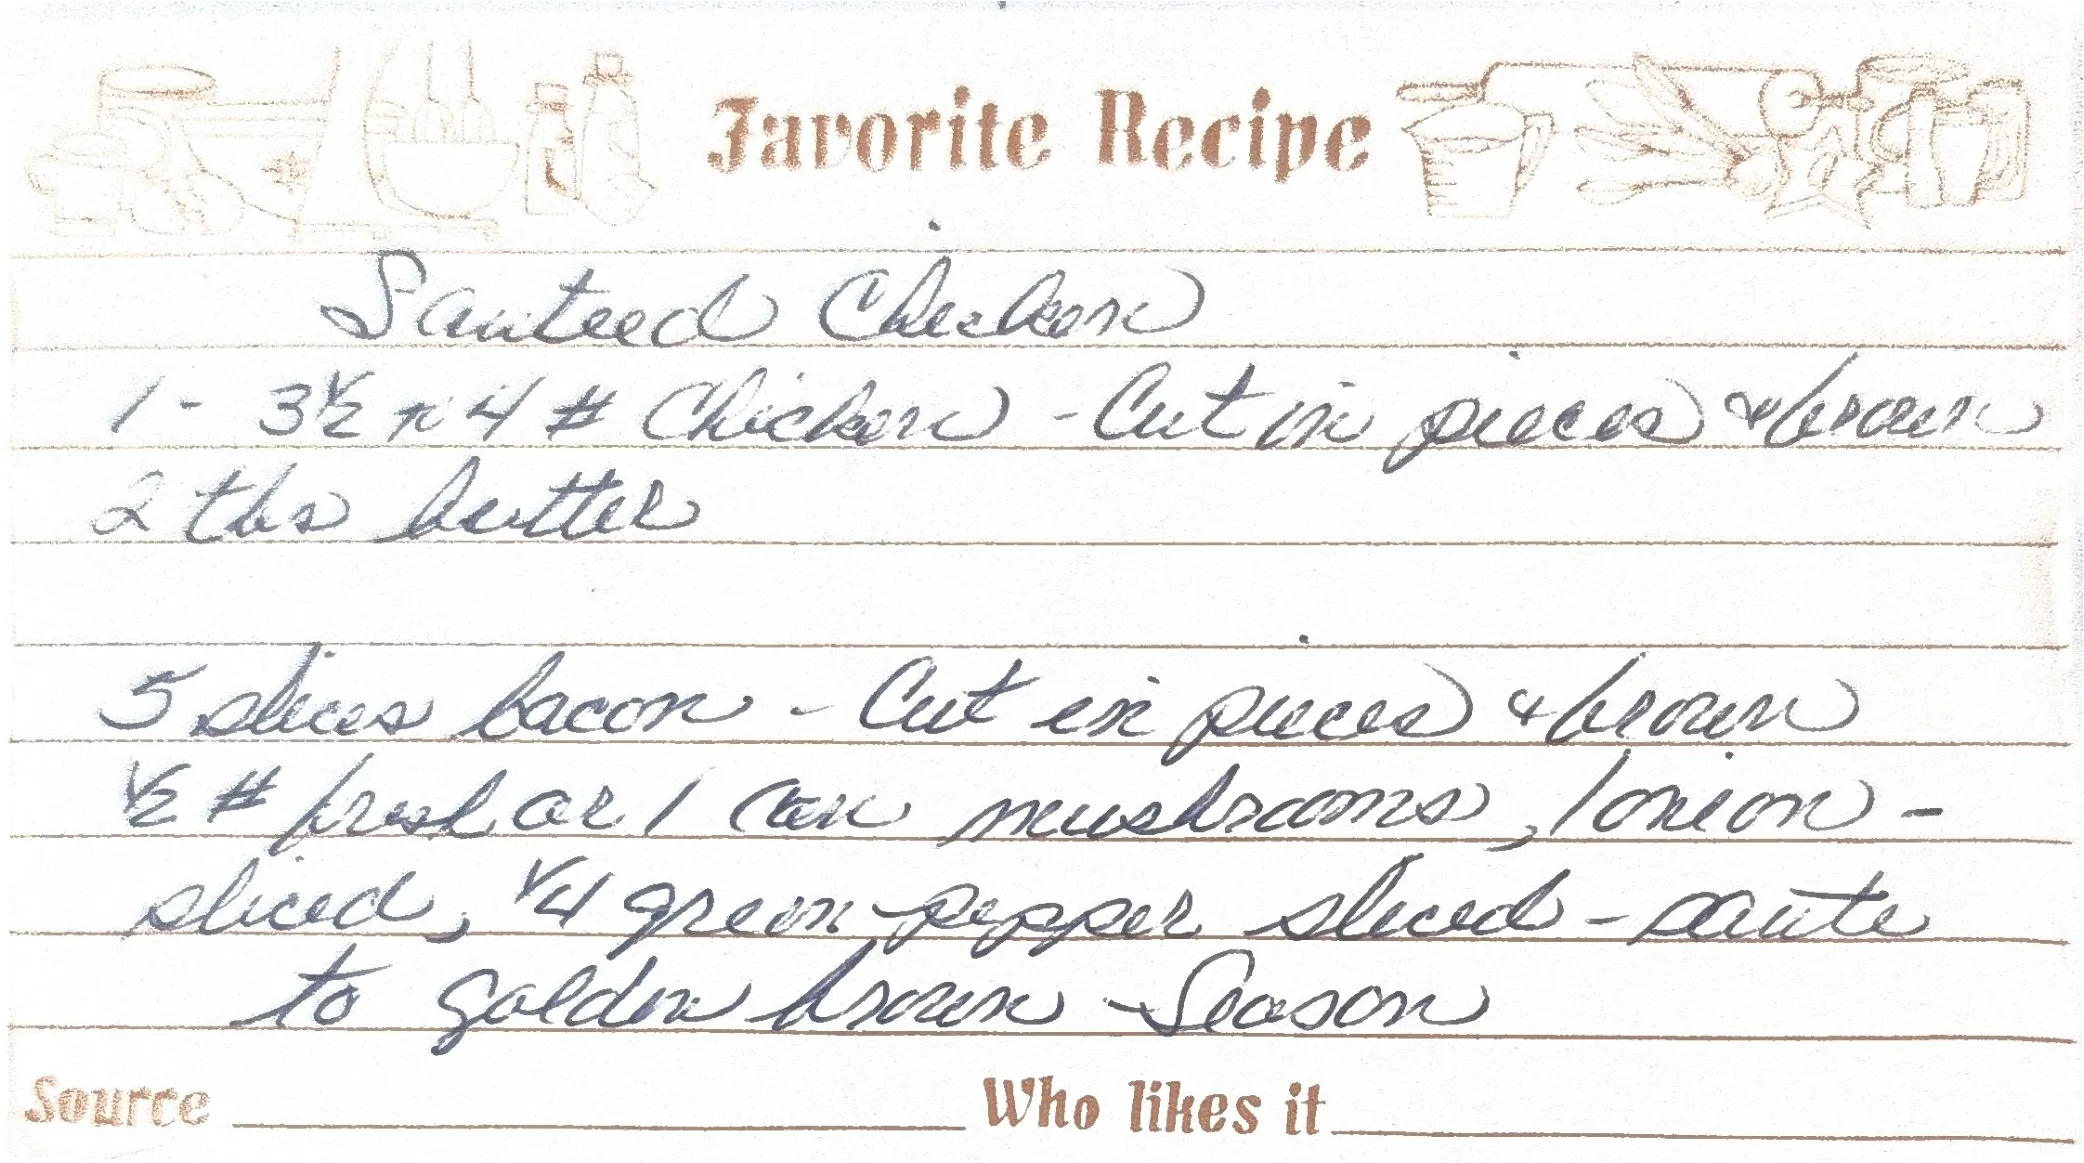 Favorite Recipe
Sauteed Chicken
1 - 3½ to 4 # Chicken - Cut in pieces & brown
2 tbs butter
5 slices bacon - Cut in pieces & brown
½ # fresh or 1 can mushrooms, 1 onion -
sliced, ¼ green pepper sliced - saute
to golden brown - Season
Source
Who likes it